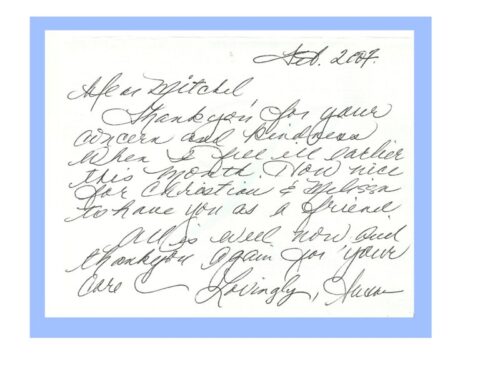 Feb. 2007.
Dear Mitchel
Thank you for your
concern and kindness
when I fell ill earlier
this month. How nice
for Christian & Melissa
to have you as a friend
All is well now and
thank you again for your
care — Lovingly, Susan